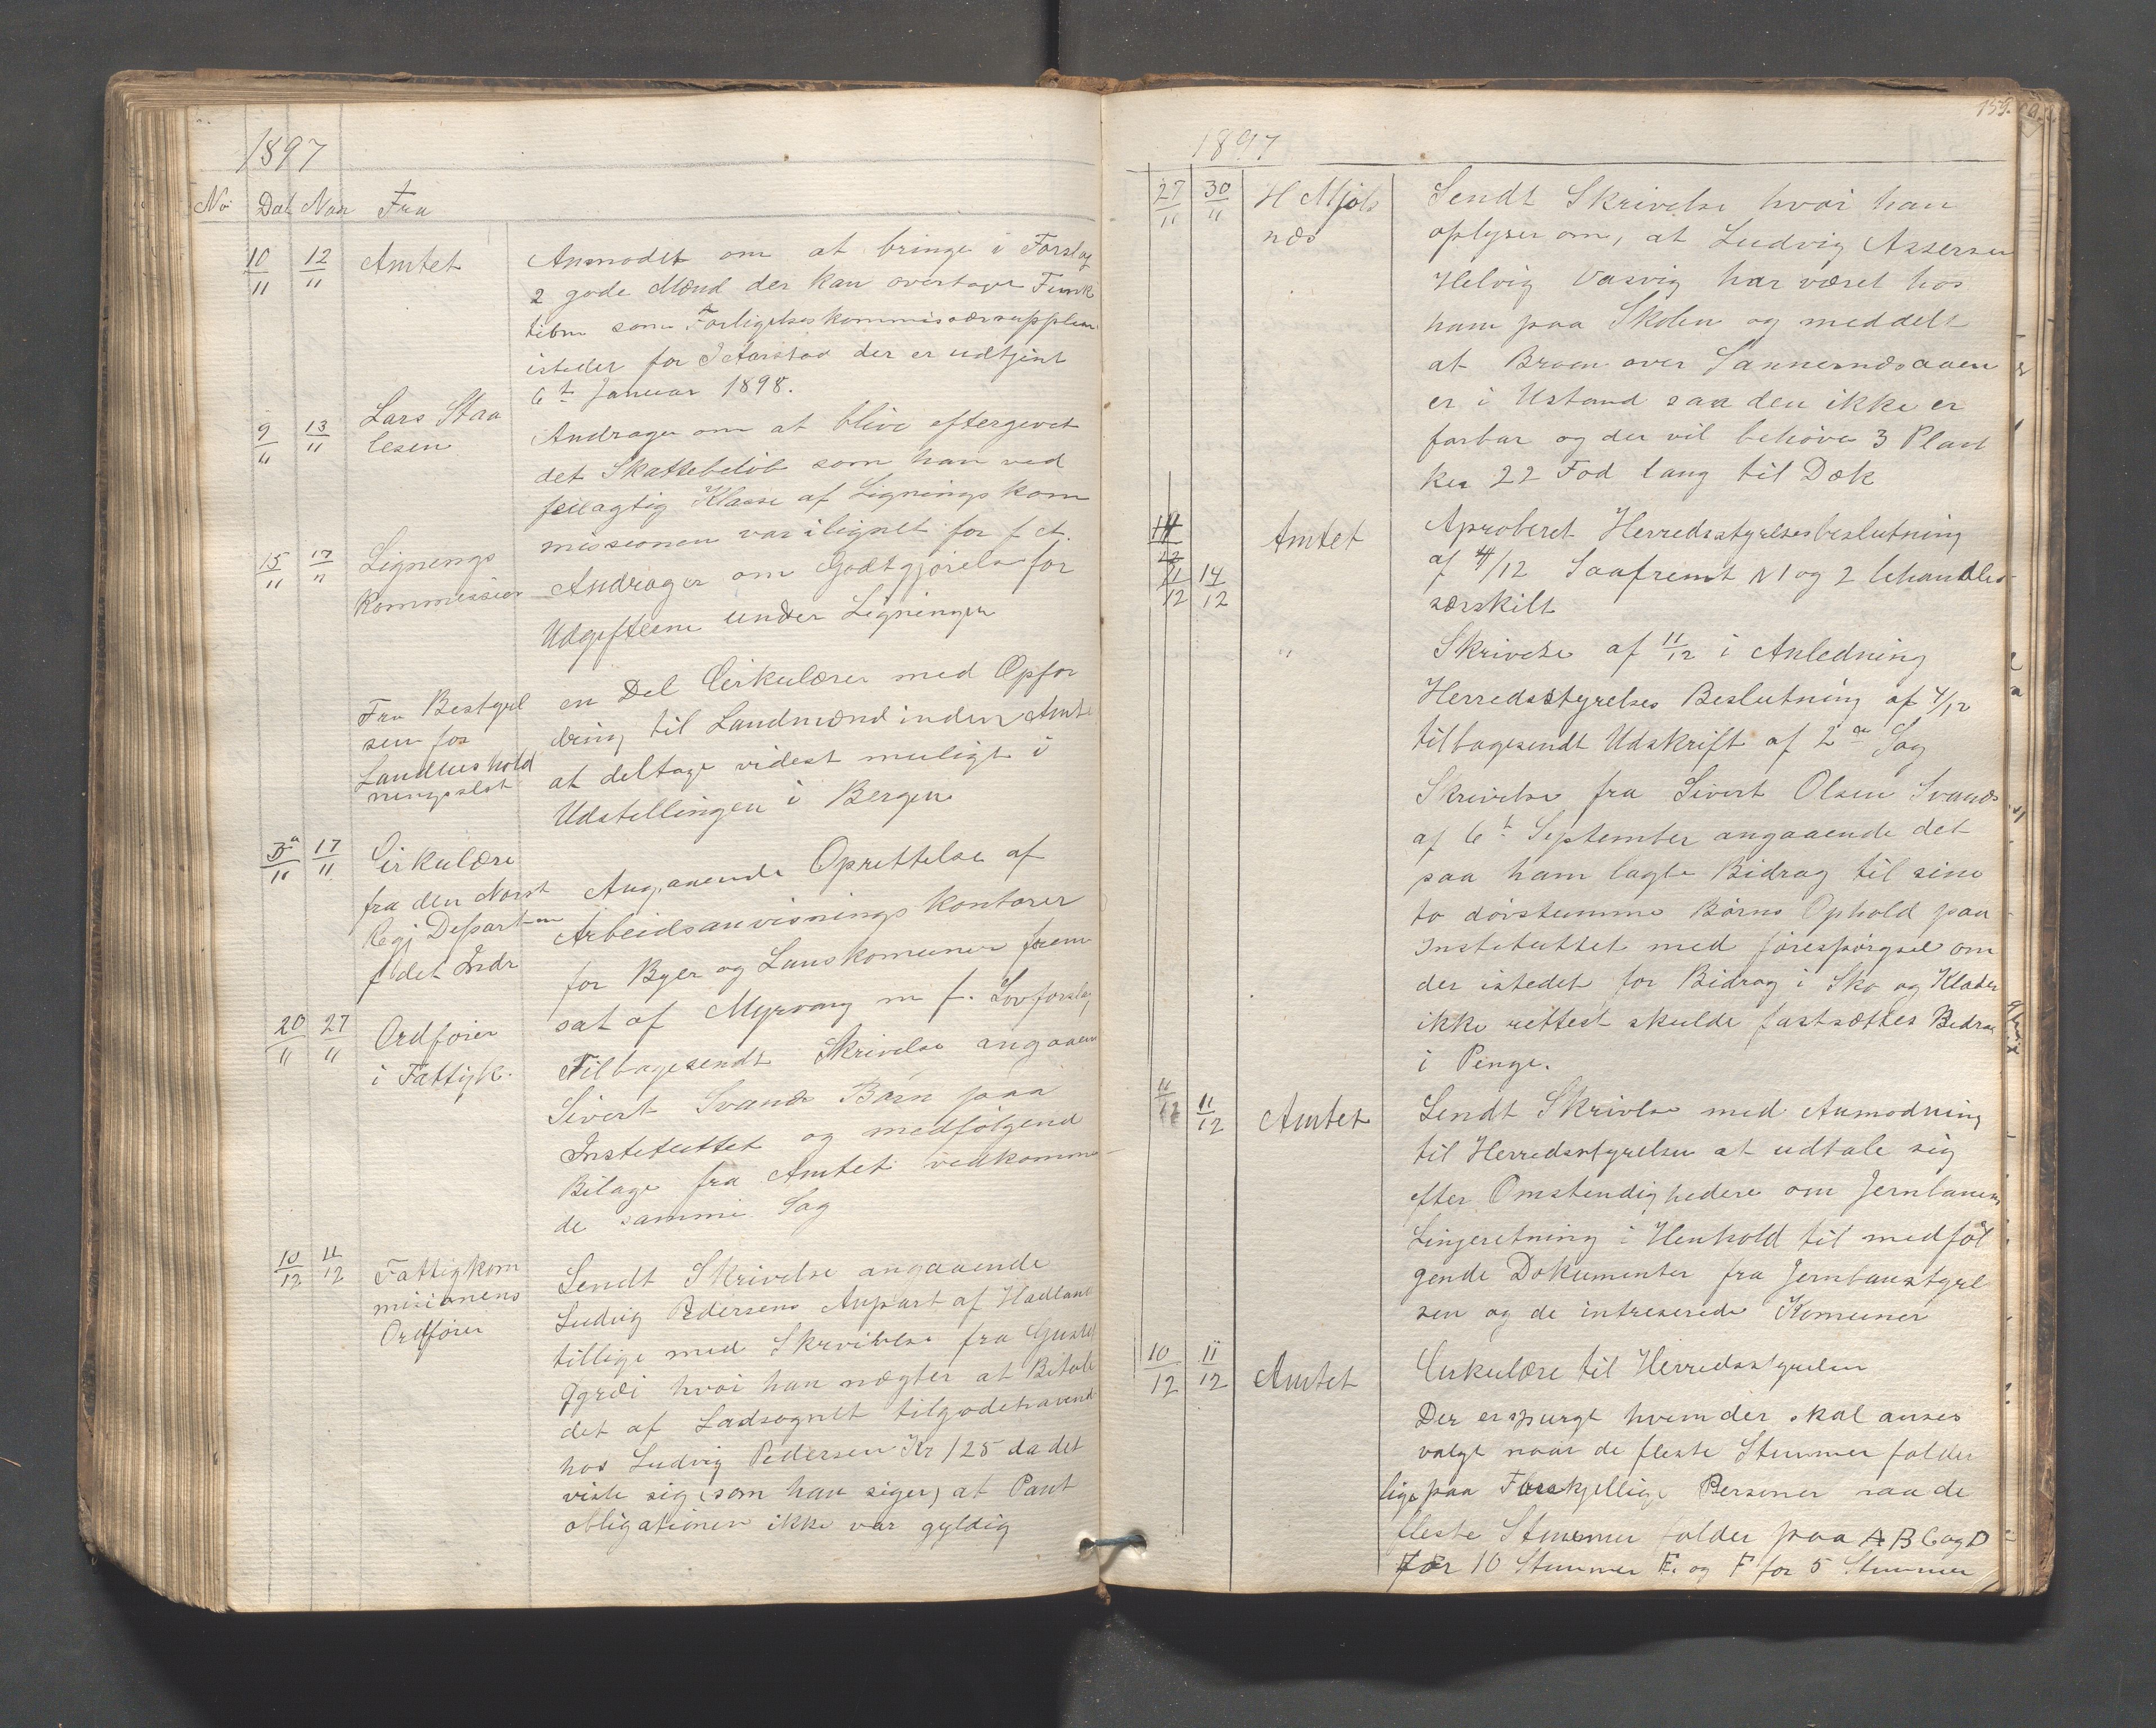 1897
No Dat Naar Fra
10/11 12/11 Amtet
Anmodet om at bringe i Forslag
2 gode Mænd der kan overtage Funk
tionen som Forligelseskommisærsupplean
isteder for J Aarstad der er udtjent
6t Januar 1898.
9/11 13/11 Lars Staa
lesen
Andrager om at blive eftergevet
det Skattebeløb som han ved
feilagtig Klasse af Lignings kom
missionen var ilignet for f. A.
15/11 17/11 Lignings
kommission
Andrager om Godtgjørelse for
Udgifterne under Ligningen
Fra Bestyrel
sen for
Landhushold
ningselst
en Del Cirkulærer med Opfor
dring til Landmænd inden Amte
at deltage videst muligt i
Udstellingen i Bergen
17/11 Cirkulære
fra den Norsk
Regj Departem
f det Indr
Angaaende Oprettelse af
Arbeidsanvisnings kontorer
for Byer og Lanskomuner frem
sat af Myrvang m f. Lovforslag
20/11 27/11 Ordfører
i Fattigk.
Tilbagesendt Skrivelse angaaen
Sivert Svanæs Barn paa
Institutet og medfølgend
Bilage fra Amtet vedkomme
de samme Sag
10/12 11/12 Fattigkom
misionens
Ordfører
Sendt Skrivelse angaaende
Ludvig Pedersens Anpart af Hadland
tillige med Skrivelse fra Gustaf
hvori han nægter at Bitale
det af Ladsognet tilgodehavend
hos Ludvig Pedersen Kr 125 da det
viste sig (som han siger) at Pant
obligationen ikke var gyldig
155.
1897
27/11 30/11 H Mjøls
næs
Sendt Skrivelse hvori han
oplyser om, at Ludvig Assersen
Helvig Vasvig har været hos
ham paa Skolen og meddelt
at Broen over Sannernæsaaen
er i Ustand saa den ikke er
farbar og der vil behøve 3 Plan
ker 22 Fod lang til Dæk
Amtet
Aproberet Herredsstyrelsesbeslutning
af 4/12 Saafremt N 1 og 2 behandles
særskilt
11/12 14/12
"
Skrivelse af 11/12 i Anledning
Herredsstyrelses Beslutning af 4/12
tilbagesendt Udskrift af 2en Sag
Skrivelse fra Sivert Olsen Svanæs
af 6t September angaaende det
paa ham lagte Bidrag til sine
to døvstumme Børns Ophold paa
Institutet med førespørgsel om
der istedet for Bidrag i Sko og Klæder
ikke rettest skulde fastsættes Bidrag
i Penge.
11/12 11/12 Amtet
Sendt Skrivlse med Anmodning
til Herredsstyrelsen at udtale sig
efter Omstendighedere om Jernbanens
Linjeretning i Henhold til medføl
gende Dokumenter fra Jernbanestyrel
sen og de intreserede Komuner
10/12 11/12 Amtet
Cirkulære til Herredsstyrelsen
Der er spurgt hvem der skal anses
valgt naar de fleste Stemmer falder
lige paa Forskjellige Personer saa de
fleste Stemmer falder paa A B C og D
For 10 Stemmer E. og F for 5 Stemmer